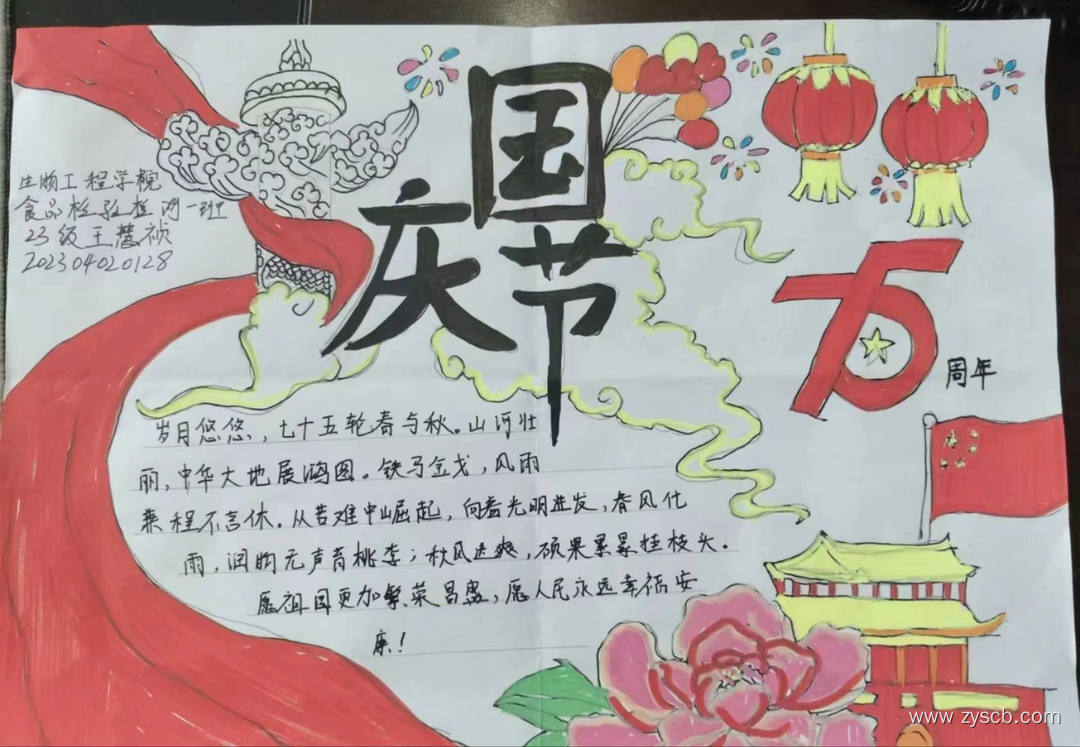 国
庆
节
生物工程学院
食品检验检测一班
23级王慧祯
202304020128
75
周年
岁月悠悠，七十五轮春与秋。山河壮
丽，中华大地展鸿图。铁马金戈，风雨
兼程不言休。从苦难中崛起，向着光明进发，春风化
雨，润物无声育桃李；秋风送爽，硕果累累挂枝头。
愿祖国更加繁荣昌盛，愿人民永远幸福安
康！
www.zyscb.com